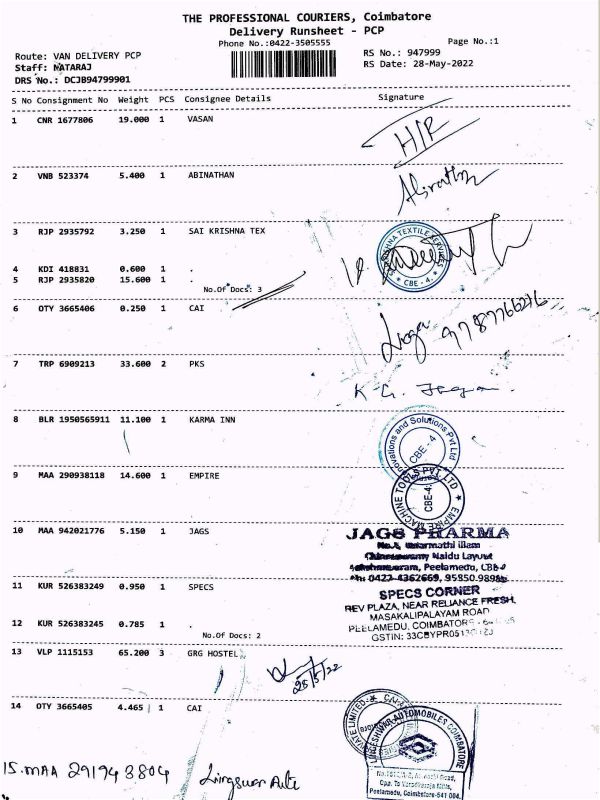 THE PROFESSIONAL COURIERS, Coimbatore
Delivery Runsheet - PCP
Phone No.:0422-3505555
Page No.:1
Route: VAN DELIVERY PCP
RS No.: 947999
Staff: NATARAJ
RS Date: 28-May-2022
DRS No.: DCJB94799901
S No Consignment No Weight PCS Consignee Details Signature
1 CNR 1677806 19.000 1 VASAN
2 VNB 523374 5.400 1 ABINATHAN
3 RJP 2935792 3.250 1 SAI KRISHNA TEX
TEXTILE SERVICES
CBE - 4.
4 KDI 418831 0.600 1 .
5 RJP 2935820 15.600 1 .
No.Of Docs: 3
6 OTY 3665406 0.250 1 CAI
7 TRP 6909213 33.600 2 PKS
8 BLR 1950565911 11.100 1 KARMA INN
and Solutions Pvt Ltd
CBE - 4
9 MAA 290938118 14.600 1 EMPIRE
EMPIRE MACHINE TOOLS PVT LTD
CBE-4.
10 MAA 942021776 5.150 1 JAGS
JAGS PHARMA
Naidu Layout
Peelamedu, CBE-4
0422-4362669,
11 KUR 526383249 0.950 1 SPECS
SPECS CORNER
REV PLAZA, NEAR RELIANCE FRESH,
MASAKALIPALAYAM ROAD
PEELAMEDU, COIMBATORE
12 KUR 526383245 0.785 1 .
GSTIN:
No.Of Docs: 2
13 VLP 1115153 65.200 3 GRG HOSTEL
28/5/22
14 OTY 3665405 4.465 1 CAI
AUTOMOBILES COIMBATORE
Peelamedu, Coimbatore-641 004.
15. MAA 291943804